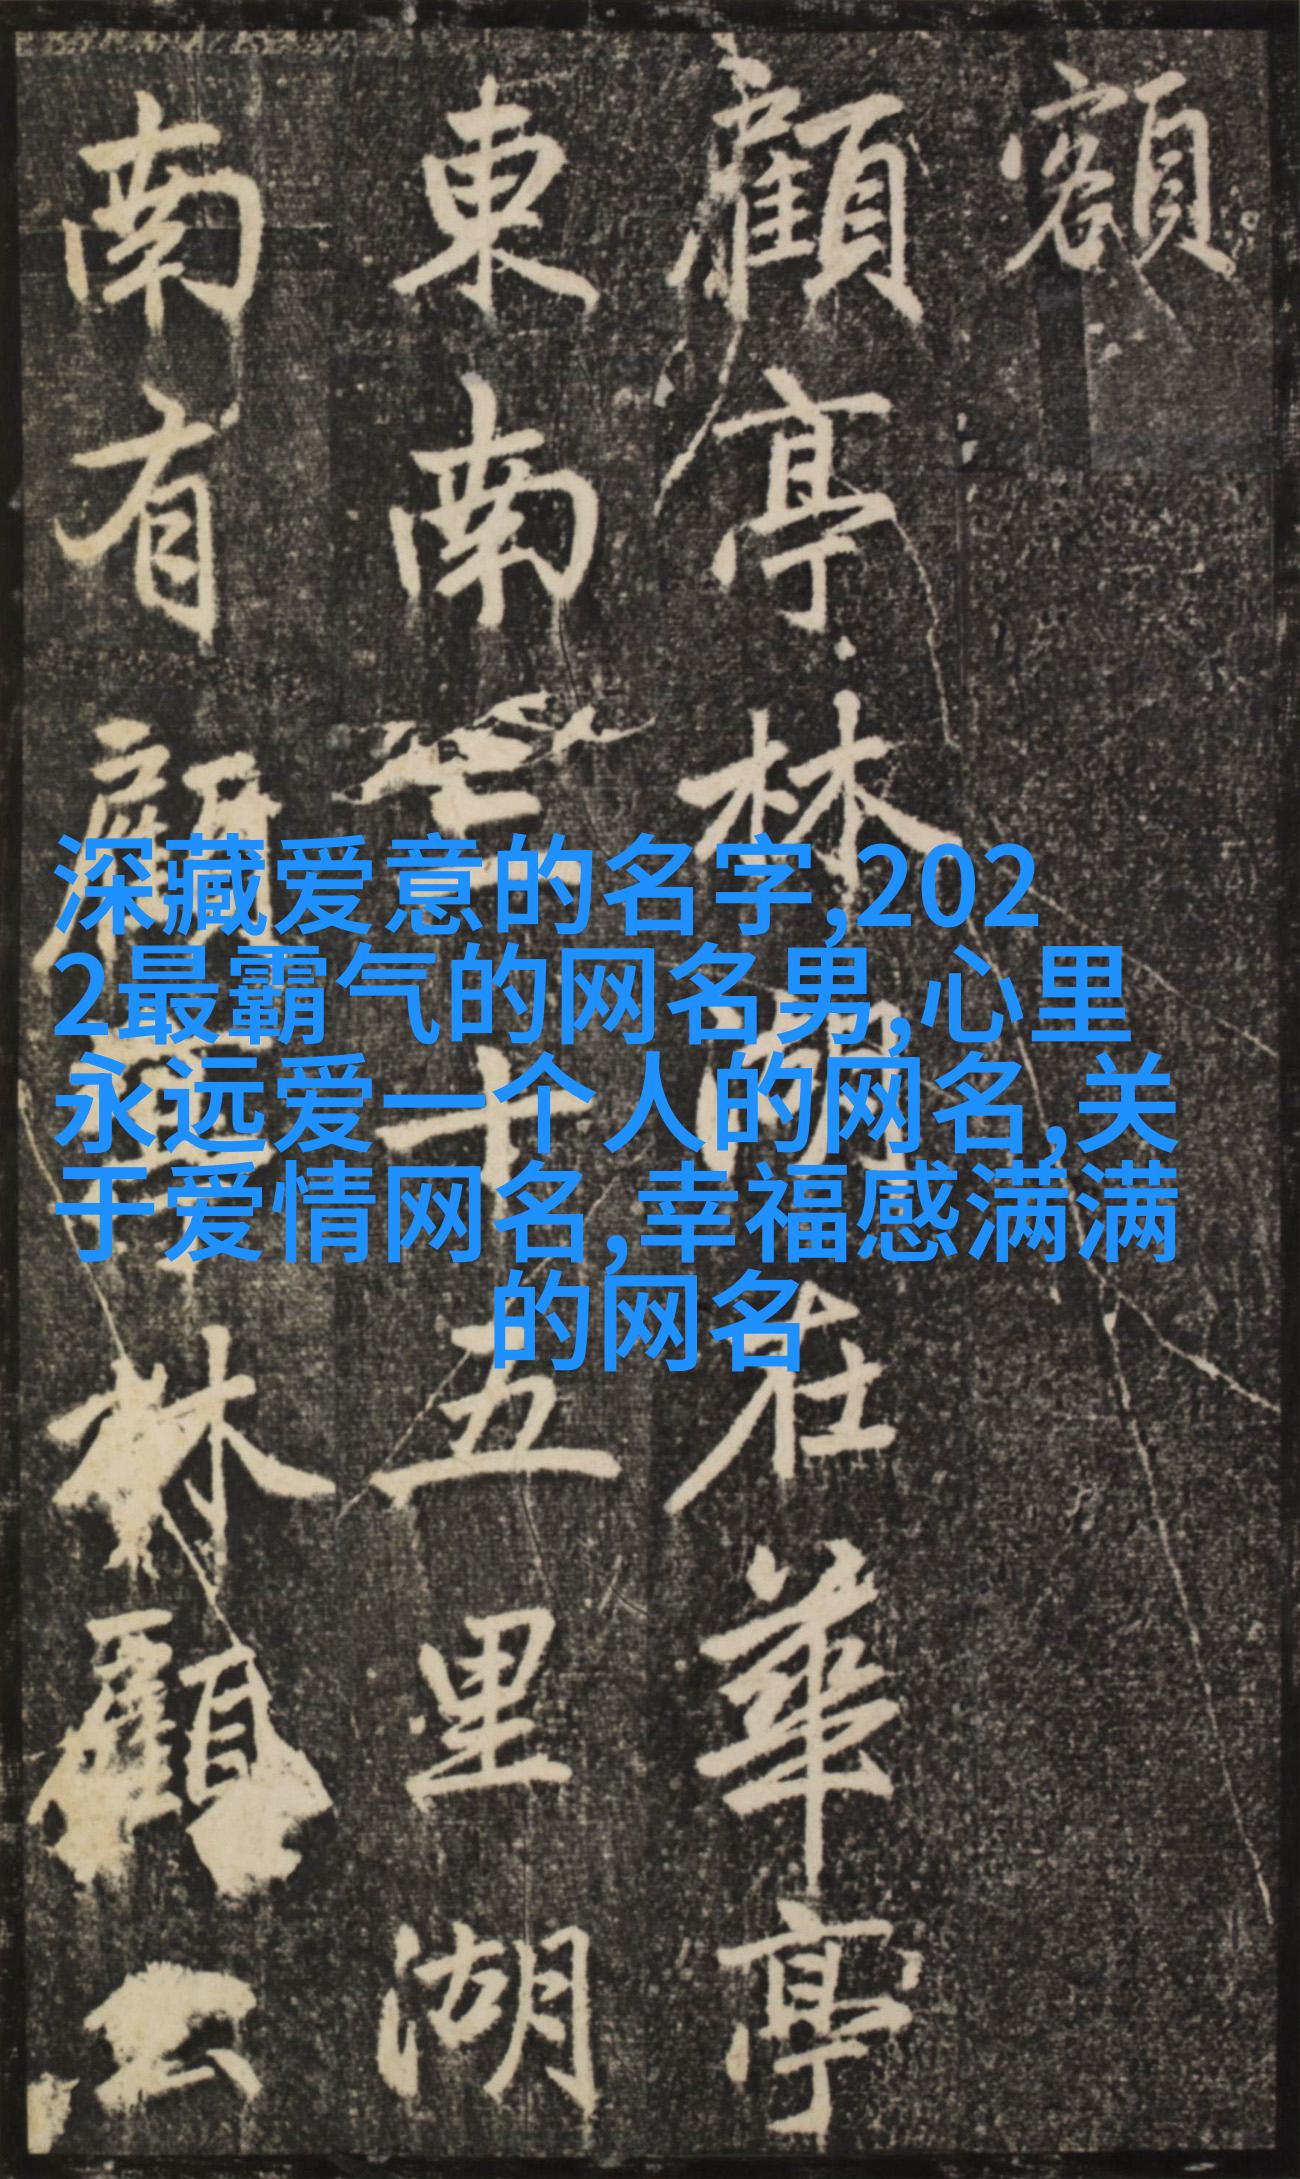 額
顧亭林湖在華亭
東南
十五里湖
南有顧
林顧公
深藏爱意的名字,202
2最霸气的网名男,心里
永远爱一个人的网名,关
于爱情网名,幸福感满满
的网名